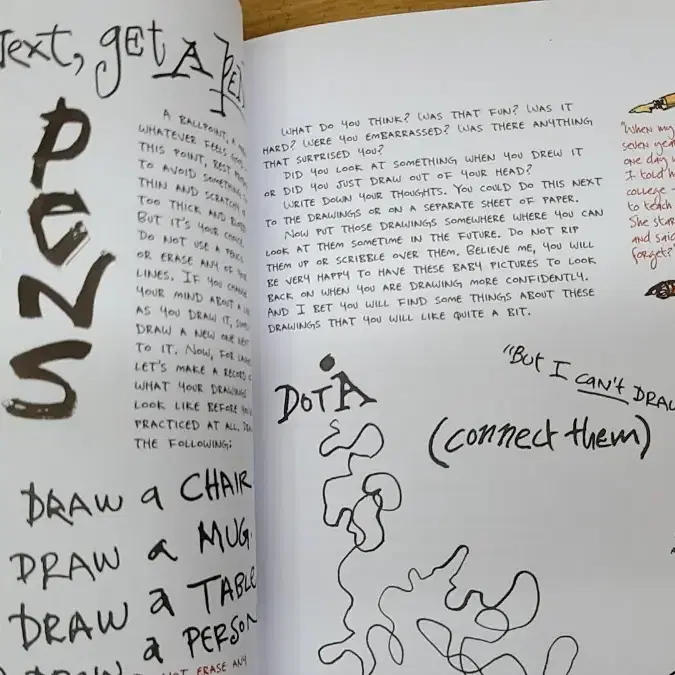 Text, get A PEN
PENS
A BALLPOINT, A
WHATEVER FEELS
THIS POINT, BEST
TO AVOID SOMETHING
THIN AND SCRATCHY
TOO THICK AND
BUT IT'S YOUR CHOICE
DO NOT USE A PENCIL
OR ERASE ANY OF YOUR
LINES. IF YOU CHANGE
YOUR MIND ABOUT A LINE
AS YOU DRAW IT,
DRAW A NEW ONE NEXT
TO IT. NOW, FOR
LET'S MAKE A RECORD
WHAT YOUR DRAWINGS
LOOK LIKE BEFORE YOU
PRACTICED AT ALL.
THE FOLLOWING:
DRAW a CHAIR
DRAW a MUG.
DRAW a TABLE
DRAW a PERSON
NOT ERASE ANY
WHAT DO YOU THINK? WAS THAT FUN? WAS IT
HARD? WERE YOU EMBARRASSED? WAS THERE ANYTHING
THAT SURPRISED YOU?
DID YOU LOOK AT SOMETHING WHEN YOU DREW IT
OR DID YOU JUST DRAW OUT OF YOUR HEAD?
WRITE DOWN YOUR THOUGHTS. YOU COULD DO THIS NEXT
TO THE DRAWINGS OR ON A SEPARATE SHEET OF PAPER.
NOW PUT THOSE DRAWINGS SOMEWHERE WHERE YOU CAN
LOOK AT THEM SOMETIME IN THE FUTURE. DO NOT RIP
THEM UP OR SCRIBBLE OVER THEM. BELIEVE ME, YOU WILL
BE VERY HAPPY TO HAVE THESE BABY PICTURES TO LOOK
BACK ON WHEN YOU ARE DRAWING MORE CONFIDENTLY.
AND I BET YOU WILL FIND SOME THINGS ABOUT THESE
DRAWINGS THAT YOU WILL LIKE QUITE A BIT.
"When my
seven year
one day
I told
college
to teach
She
and said
forget?"
DOT A
"But I can't DRAW
(connect them)